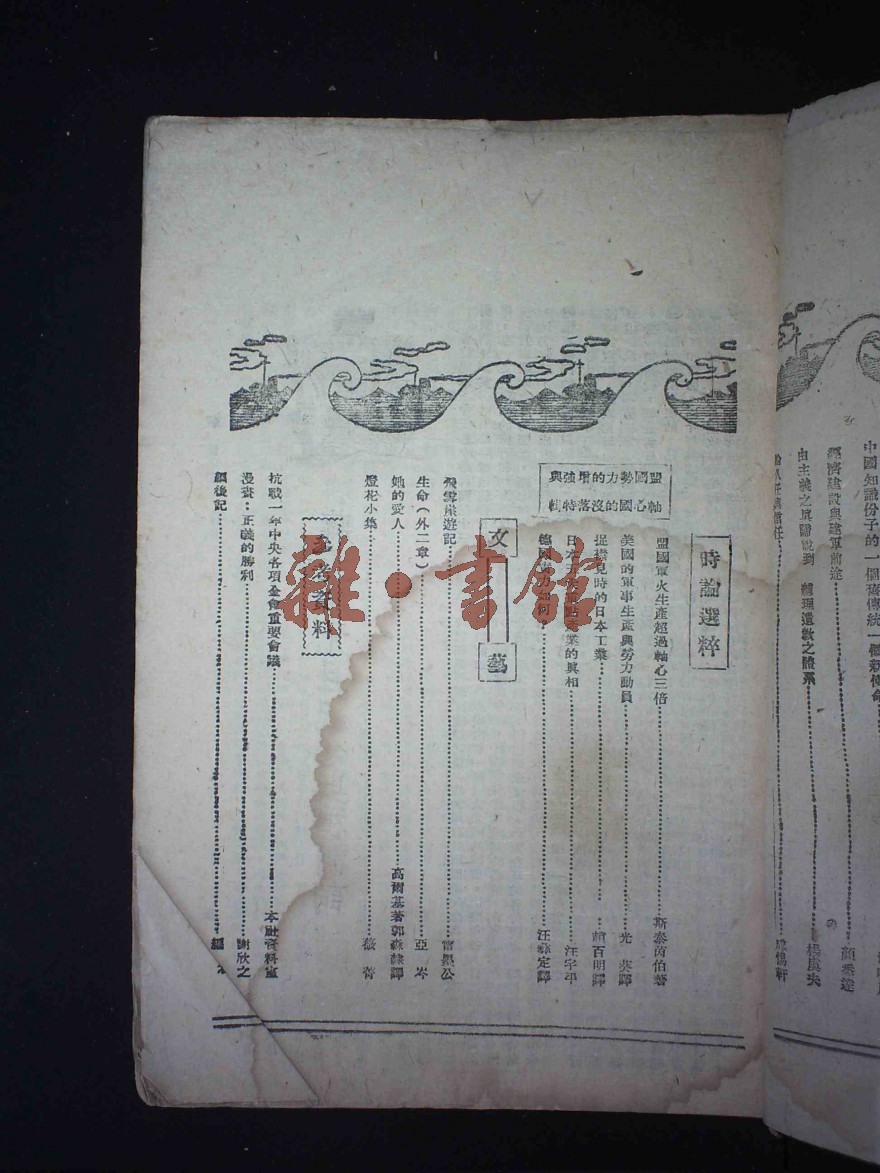 中國知識份子的一個舊傳統一個新使命
經濟建設與建軍前途
顧季達
由主義之真歸說到
楊慎夫
時論選粹
盟國勢力的增強與
軸心國的沒落特輯
盟國軍火生產超過軸心三倍 斯泰茵伯著
美國的軍事生產與勞力動員 光英譯
捉襟見時的日本工業 賴百明譯
業的真相 汪宇平
德國 汪彝定譯
文藝
飛雲崖遊記 墨公
生命(外二章) 亞岑
她的愛人 高爾基著郭森麟譯
燈花小集 薇菁
資料
抗戰一年中央各項全會重要會議 本社資料室
漫畫:正義的勝利 謝欣之
編後記 編者
雜·書館